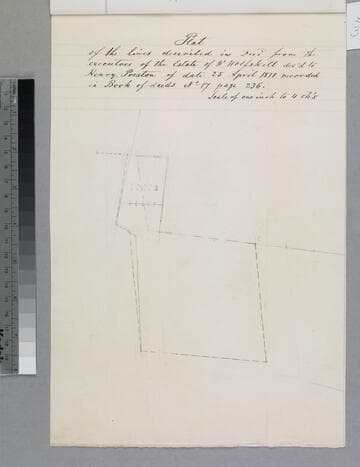 Plat
of the lines described in Deed from the
executors of the Estate of Wm Wolfskill dec'd to
Henry Preston of date 25 April 1871 recorded
in Book of deeds No 17 page 236.
Scale of one inch to 4 ch's